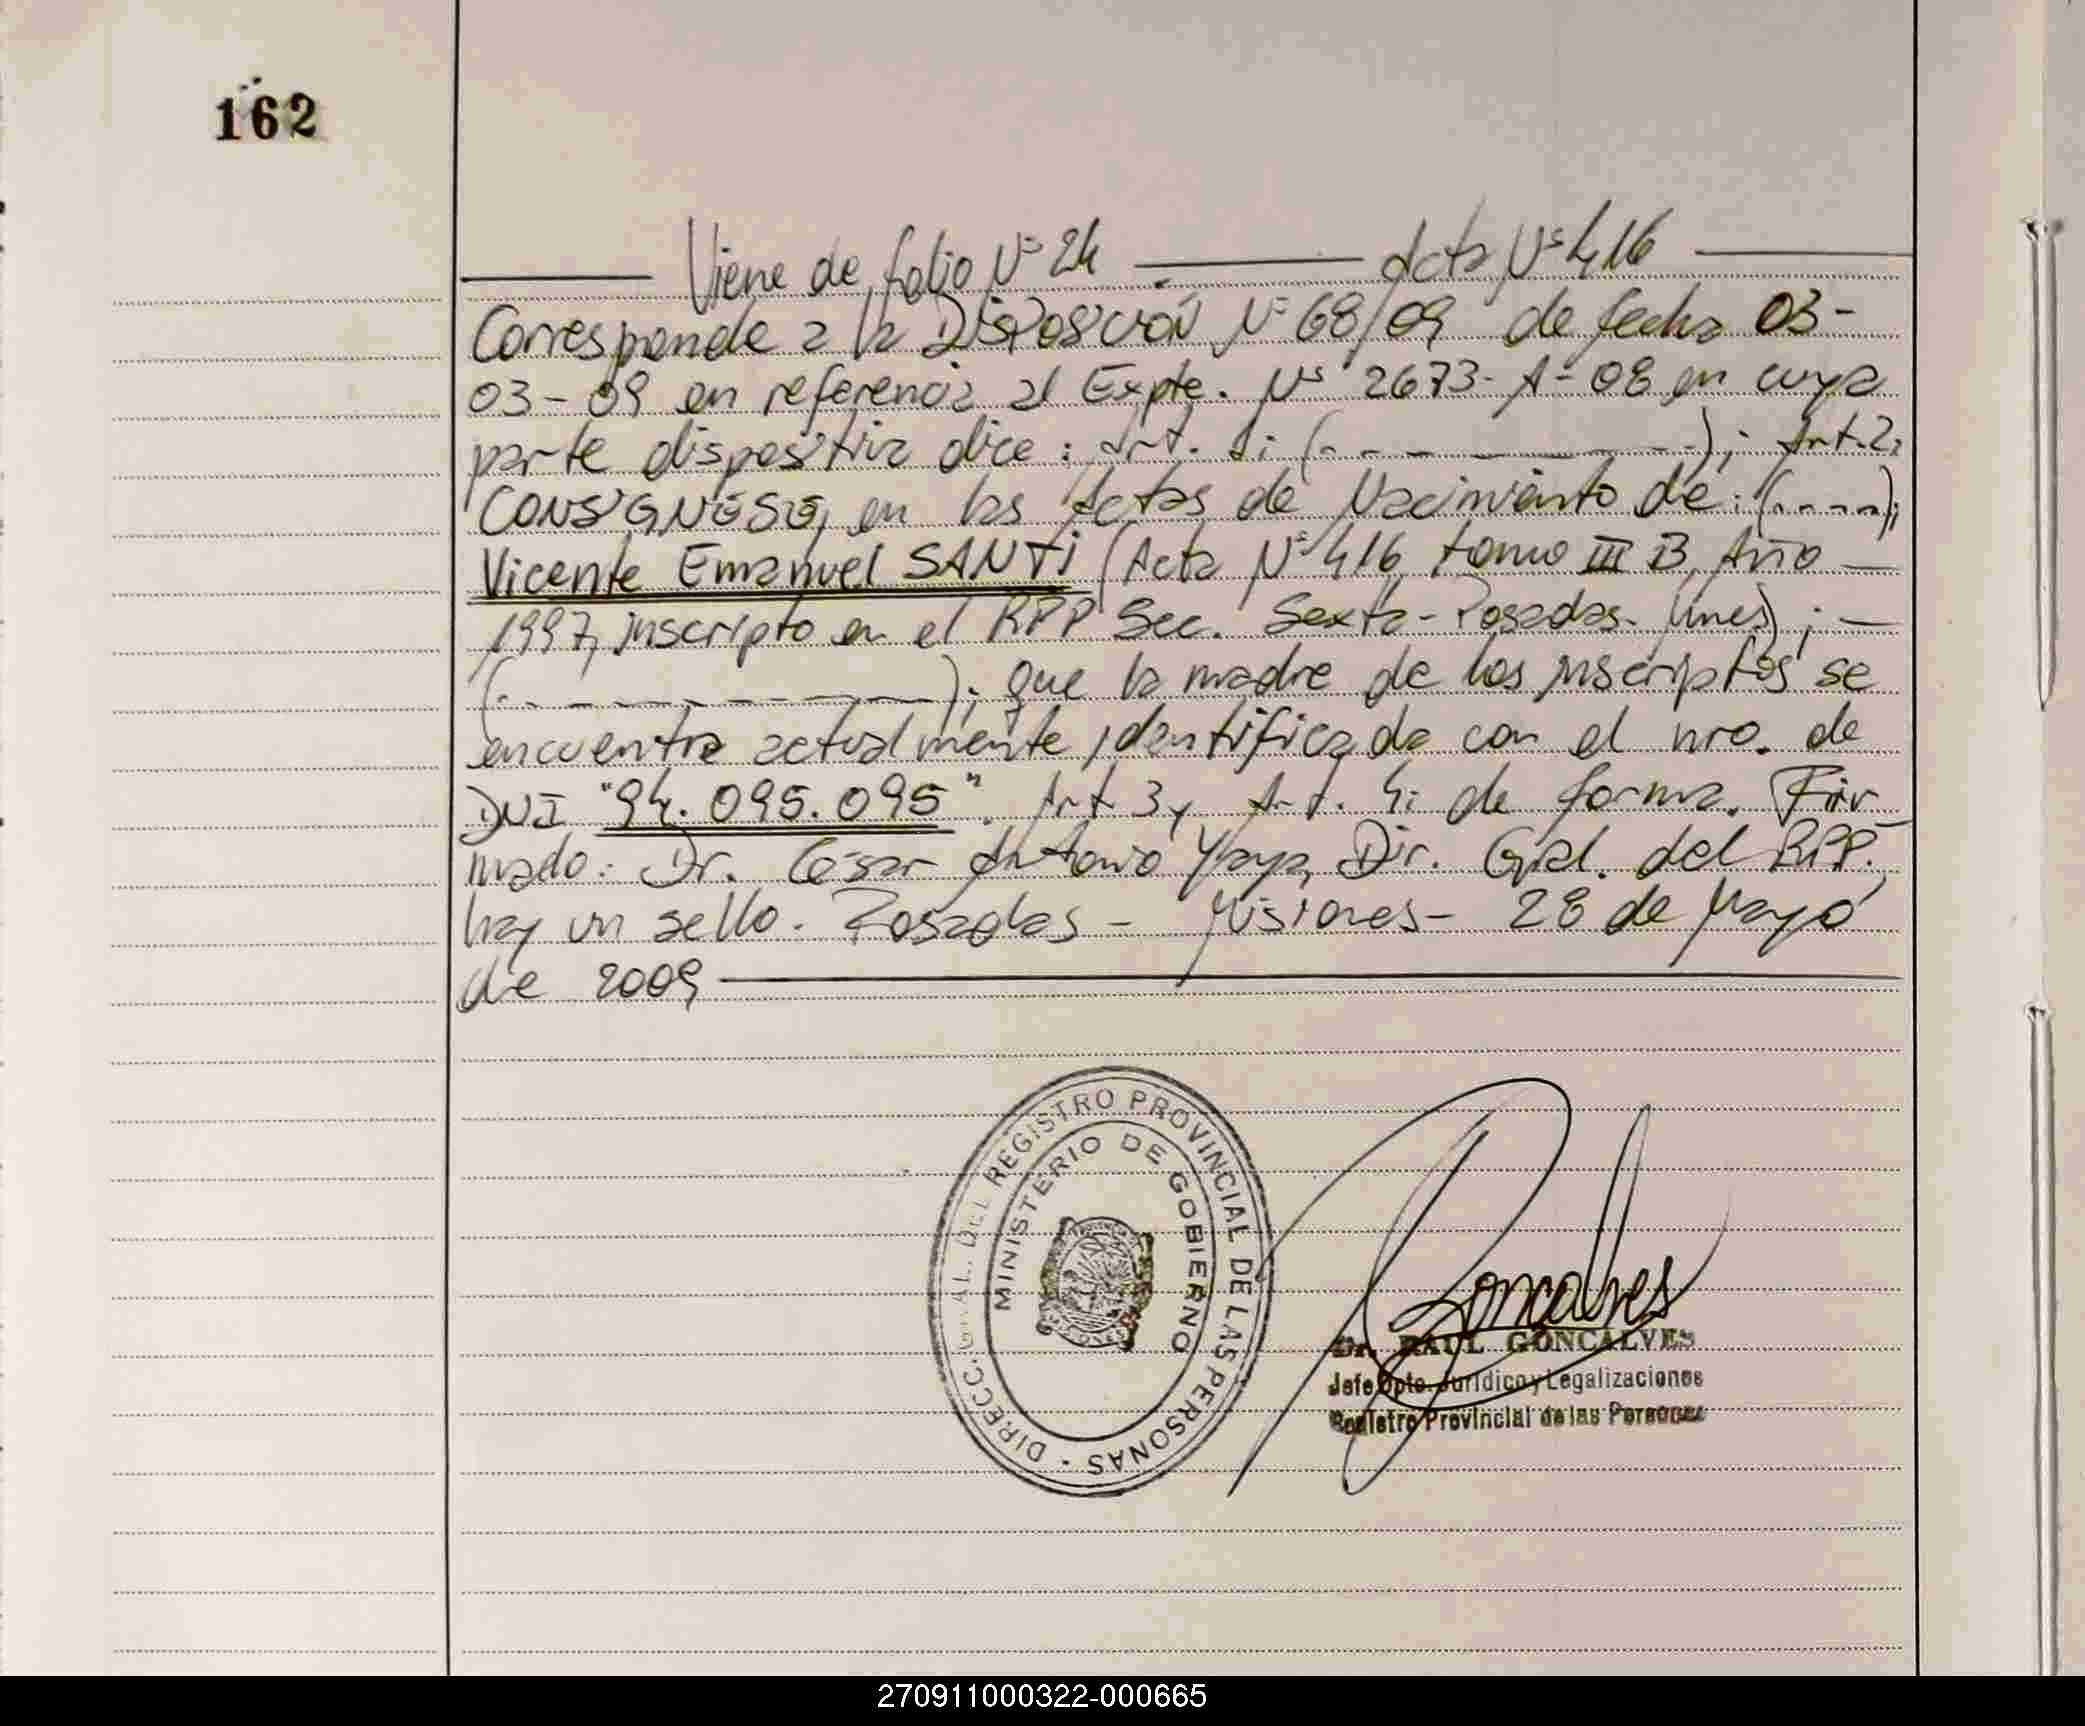 162
Viene de folio Nº 24 Acta Nº 416
Corresponde a la DISPOSICIÓN Nº 68/09 de fecha 03-
03-09 en referencia al Expte. Nº 2673-A-08 en cuya
parte dispositiva dice: Art. 1: (- - - - - - -); Art. 2:
CONSIGNESE, en las Actas de Nacimiento de: (- - - -);
Vicente Emanuel SANTI (Acta Nº 416, tomo III B, Año —
1997, inscripto en el RPP Sec. Sexta - Posadas. Mnes); —
(- - - - - - -); que la madre de los inscriptos se
encuentra actualmente identificada con el nro. de
DNI "94.095.095". Art 3 y Art. 4: de forma. Fir-
mado: Dr. César Antonio Yaya, Dir. Gral. del RPP.
hay un sello. Posadas - Misiones - 28 de Mayo
de 2009
DIRECC. GRAL. DEL REGISTRO PROVINCIAL DE LAS PERSONAS
MINISTERIO DE GOBIERNO
MISIONES
Goncalves
Dr. RAUL GONCALVES
Jefe Dpto. Jurídico y Legalizaciones
Registro Provincial de las Personas
270911000322-000665